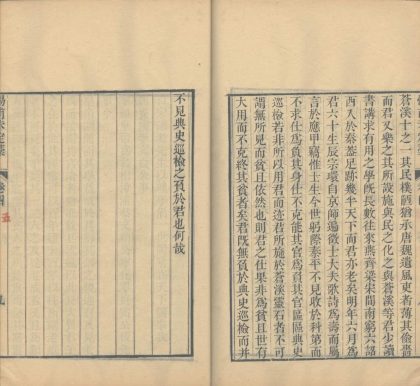 蒼溪十之一其民樸酒猶承唐魏遺風吏者薄其儉嗇
而君又樂之其所設施與民之化之與蒼溪等君少讀
書講求有用之學旣長數往來燕齊梁宋間南窮六詔
西入於秦蓋足跡幾半天下而君亦老矣明年六月爲
君六十生辰宗瓌自京師遍徵士大夫歌詩爲壽而屬
言於應甲竊惟士生今世躬際泰平不見收於科第而
不求仕爲負其身仕不克能其官爲負其官區區典史
巡檢若非所以用君而迹君所施於蒼溪靈石者不可
謂無所見而貧且依然也則君之仕果非爲貧且世有
大用而不克終其貧者矣君旣無負於典史巡檢而并
不見典史巡檢之負於君也何哉
卷四
五